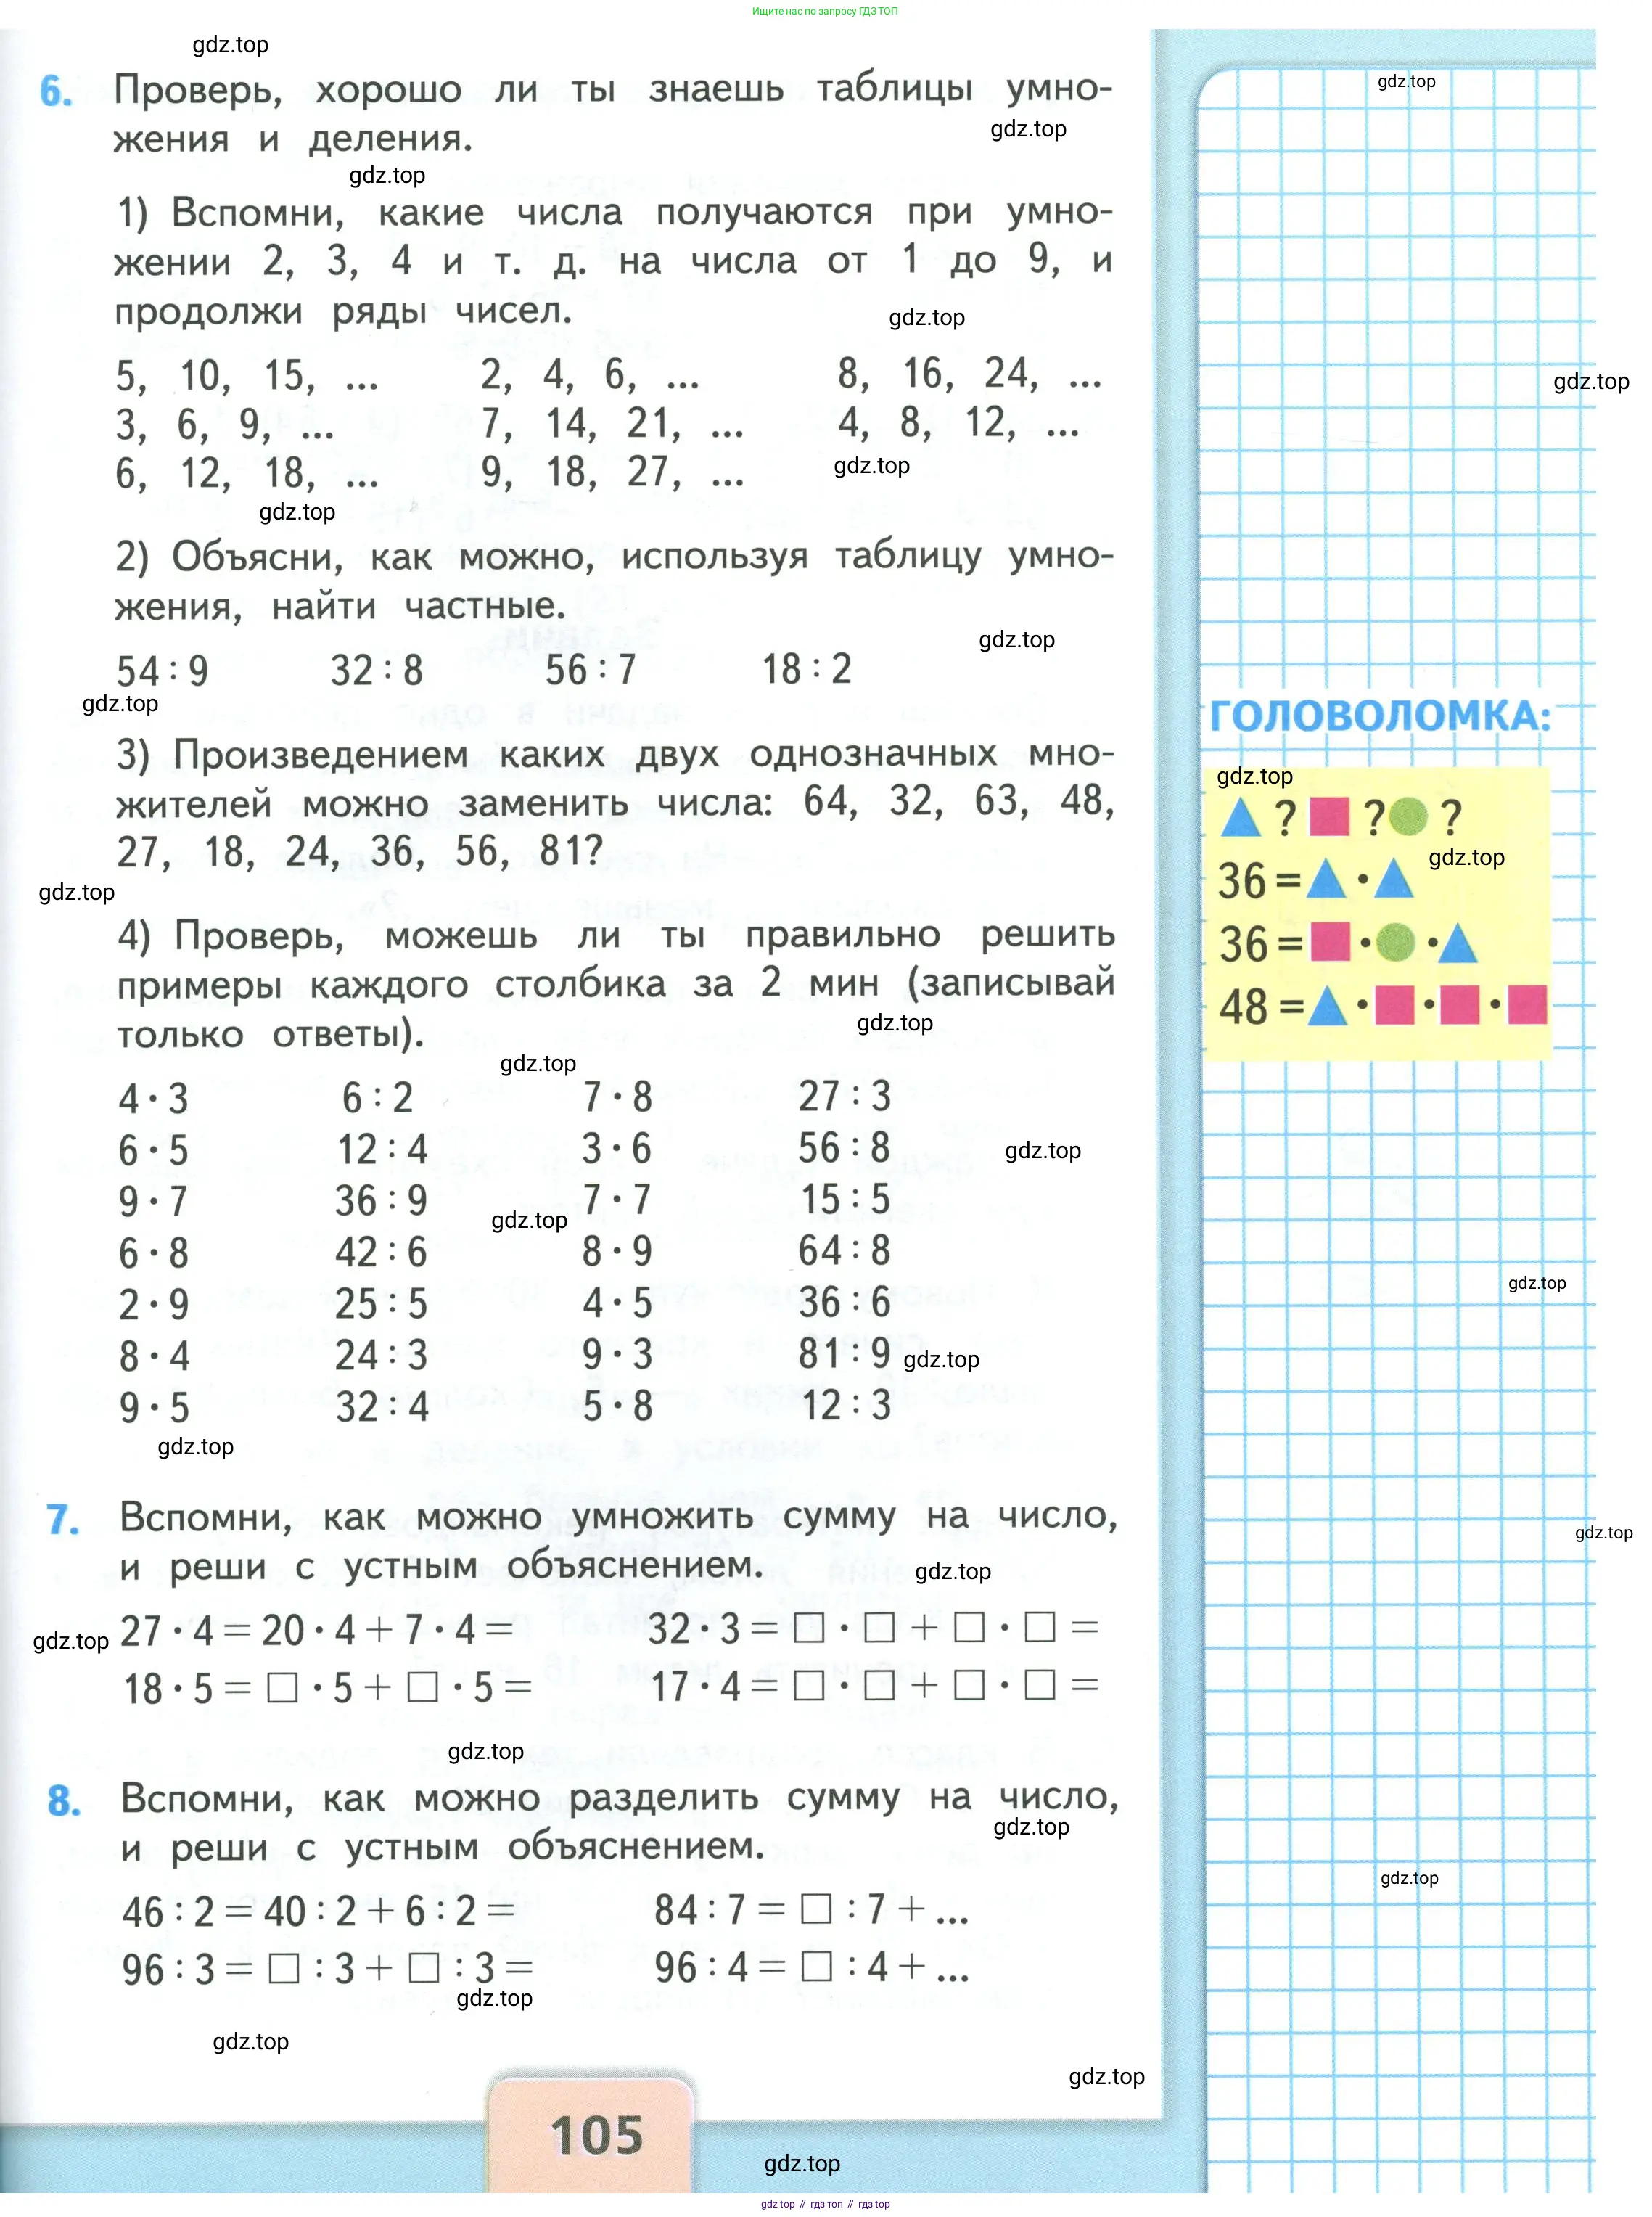 Ищите нас по запросу ГДЗ ТОП
gdz.top
6. Проверь, хорошо ли ты знаешь таблицы умно-
жения и деления.
gdz.top
gdz.top
gdz.top
1) Вспомни, какие числа получаются при умно-
жении 2, 3, 4 и т. д. на числа от 1 до 9, и
продолжи ряды чисел.
gdz.top
5, 10, 15, ... 2, 4, 6, ... 8, 16, 24, ...
gdz.top
3, 6, 9, ... 7, 14, 21, ... 4, 8, 12, ...
6, 12, 18, ... 9, 18, 27, ...
gdz.top
gdz.top
2) Объясни, как можно, используя таблицу умно-
жения, найти частные.
gdz.top
54 : 9 32 : 8 56 : 7 18 : 2
gdz.top
3) Произведением каких двух однозначных мно-
жителей можно заменить числа: 64, 32, 63, 48,
27, 18, 24, 36, 56, 81?
gdz.top
4) Проверь, можешь ли ты правильно решить
примеры каждого столбика за 2 мин (записывай
только ответы).
gdz.top
gdz.top
4 · 3 6 : 2 7 · 8 27 : 3
6 · 5 12 : 4 3 · 6 56 : 8
gdz.top
9 · 7 36 : 9 7 · 7 15 : 5
gdz.top
6 · 8 42 : 6 8 · 9 64 : 8
2 · 9 25 : 5 4 · 5 36 : 6
8 · 4 24 : 3 9 · 3 81 : 9
gdz.top
9 · 5 32 : 4 5 · 8 12 : 3
gdz.top
7. Вспомни, как можно умножить сумму на число,
и реши с устным объяснением.
gdz.top
gdz.top
27 · 4 = 20 · 4 + 7 · 4 = 32 · 3 = □ · □ + □ · □ =
18 · 5 = □ · 5 + □ · 5 = 17 · 4 = □ · □ + □ · □ =
gdz.top
8. Вспомни, как можно разделить сумму на число,
и реши с устным объяснением.
gdz.top
46 : 2 = 40 : 2 + 6 : 2 = 84 : 7 = □ : 7 + ...
96 : 3 = □ : 3 + □ : 3 = 96 : 4 = □ : 4 + ...
gdz.top
gdz.top
gdz.top
105
gdz.top
ГОЛОВОЛОМКА:
gdz.top
? ? ?
gdz.top
36 = ·
36 = · ·
48 = · · ·
gdz.top
gdz.top
gdz.top
gdz.top // гдз топ // гдз top